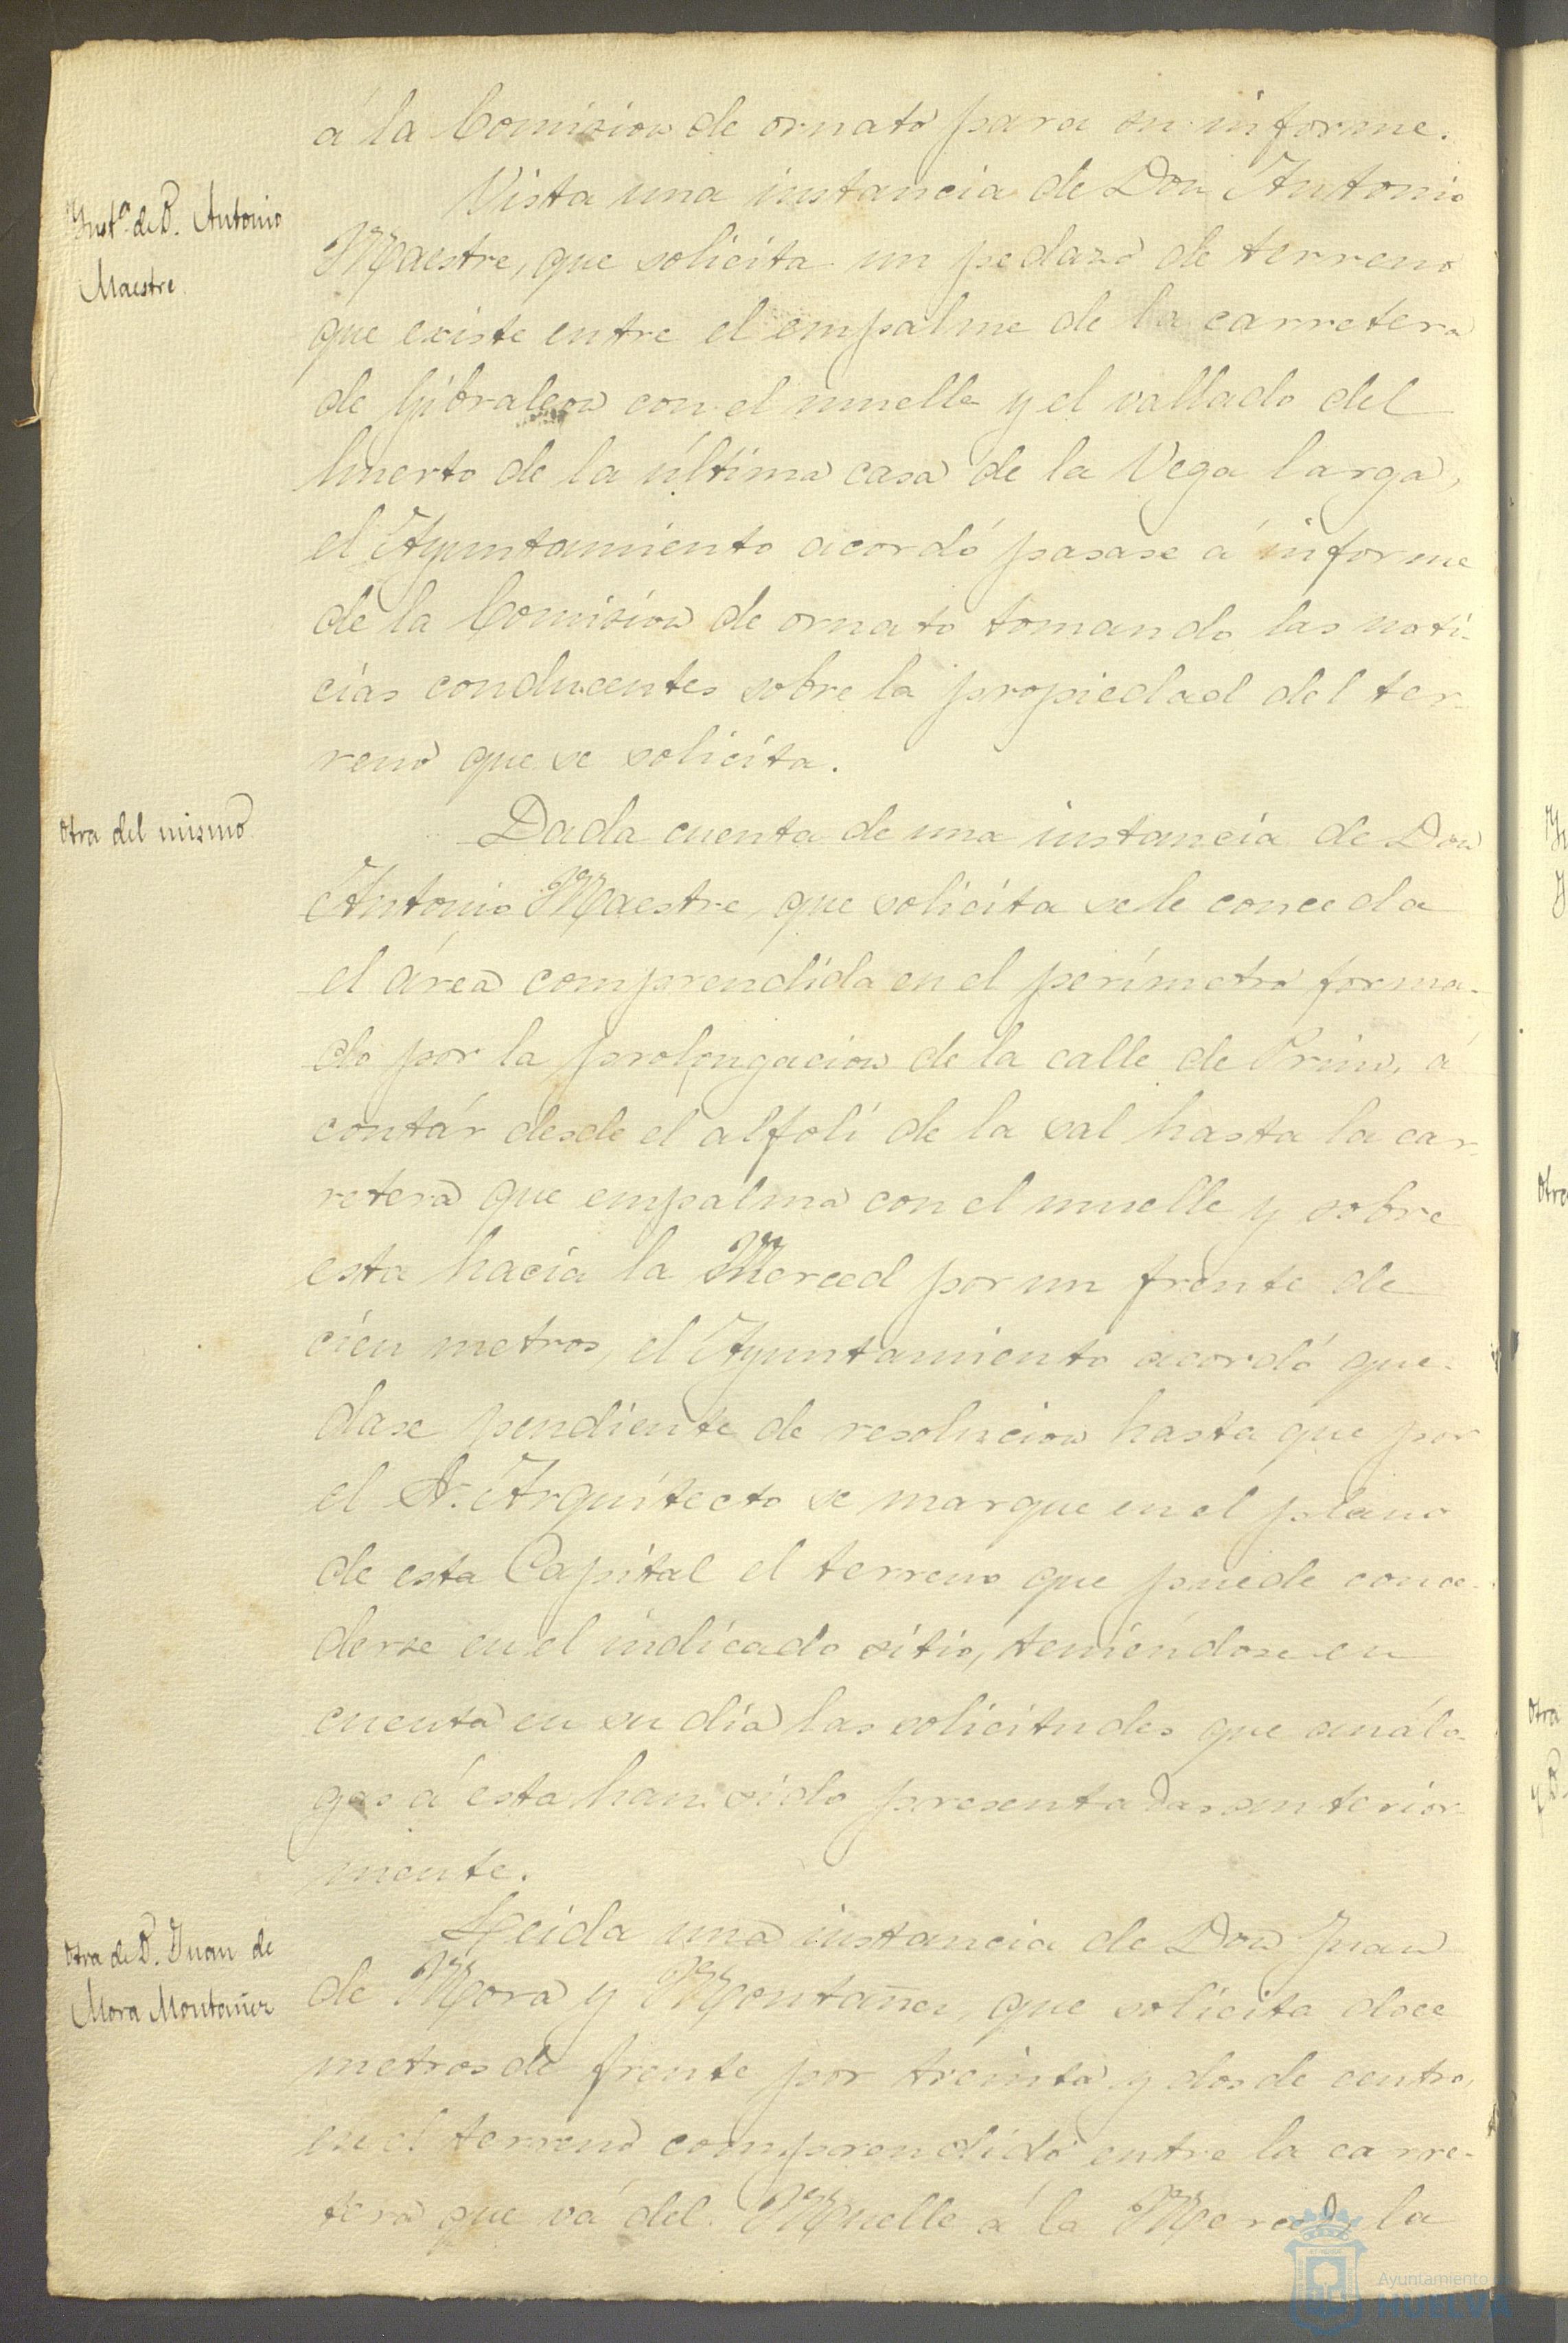 á la Comision de ornato para su informe.
Inst.ª de D. Antonio
Maestre
Vista una instancia de Don Antonio
Maestre, que solicita un pedazo de terreno
que existe entre el empalme de la carretera
de Gibraleon con el muelle y el vallado del
huerto de la última casa de la Vega larga,
el Ayuntamiento acordó pasase á informe
de la Comision de ornato tomando las noti-
cias conducentes sobre la propiedad del ter-
reno que se solicita.
Otra del mismo
Dada cuenta de una instancia de Don
Antonio Maestre, que solicita se le conceda
el área comprendida en el perímetro forma-
do por la prolongacion de la calle de Prim, á
contár desde el alfolí de la sal hasta la car-
retera que empalma con el muelle y sobre
esta hacia la Merced por un frente de
cien metros, el Ayuntamiento acordó que-
dase pendiente de resolucion hasta que por
el Sr. Arquitecto se marque en el plano
de esta Capital el terreno que puede conce-
derse en el indicado sitio, teniéndose en
cuenta en su dia las solicitudes que análo-
gas á esta han sido presentadas anterior-
mente.
Otra de D. Juan de
Mora Montañez
Leida una instancia de Don Juan
de Mora y Montañez, que solicita doce
metros de frente por treinta y dos de centro,
en el terreno comprendido entre la carre-
tera que vá del Muelle á la Merced, la
Ayuntamiento de
HUELVA